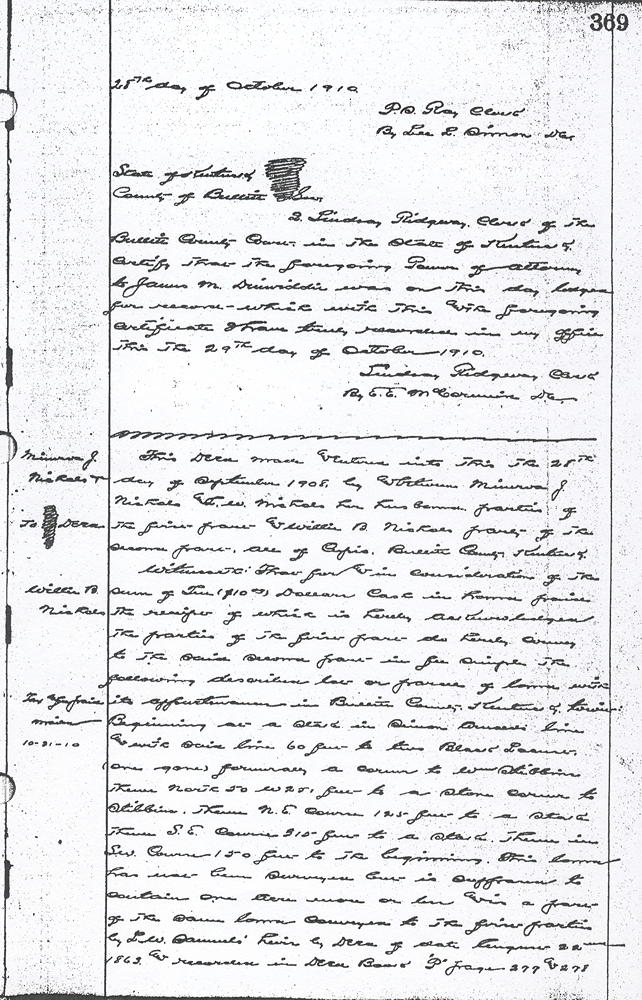 369
28th day of October 1910
P.D. Ray Clerk
By Lee L. Simmon DC
State of Kentucky
County of Bullitt Sct.
I, Lindsay Ridgway, Clerk of the
Bullitt County Court in the State of Kentucky
certify that the foregoing Power of Attorney
to James M. Dinwiddie was on this day lodged
for record which with this & the foregoing
certificate I have truly recorded in my office
this the 29th day of October 1910.
Lindsay Ridgway Clerk
By C.C. McCormick DC
Minerva J.
Nichols &
To Deed
Willie B.
Nichols
10-31-10
This Deed made & entered into this the 28th
day of September 1908, by & between Minerva J.
Nichols & Nichols her husband parties of
the first part & Willie B. Nichols party of the
second part. all of Bullitt County, Kentucky.
Witnesseth: That for & in consideration of the
sum of Ten ($10.00) Dollars Cash in hand paid
the receipt of which is hereby acknowledged
the parties of the first part do hereby convey
to the said second part in fee simple the
following described lot or parcel of land with
its appurtenances in Bullitt County, Kentucky & towit:
Beginning at a stake in line
& with said line 60 feet to two Black Locusts
(one gone) formerly a corner to Wm Stibbins
thence North 50 W 251 feet to a stone corner to
Stibbins, thence N.E. course 125 feet to a stake
thence S.E. course 215 feet to a stake. Thence in
S.W. Course 150 feet to the beginning. This land
has not been surveyed but is supposed to
contain one acre more or less & is a part
of the same land conveyed to the first parties
by L.W. Samuels' heirs by Deed of date August 22nd
1863. & recorded in Deed Book "P" page 277 & 278